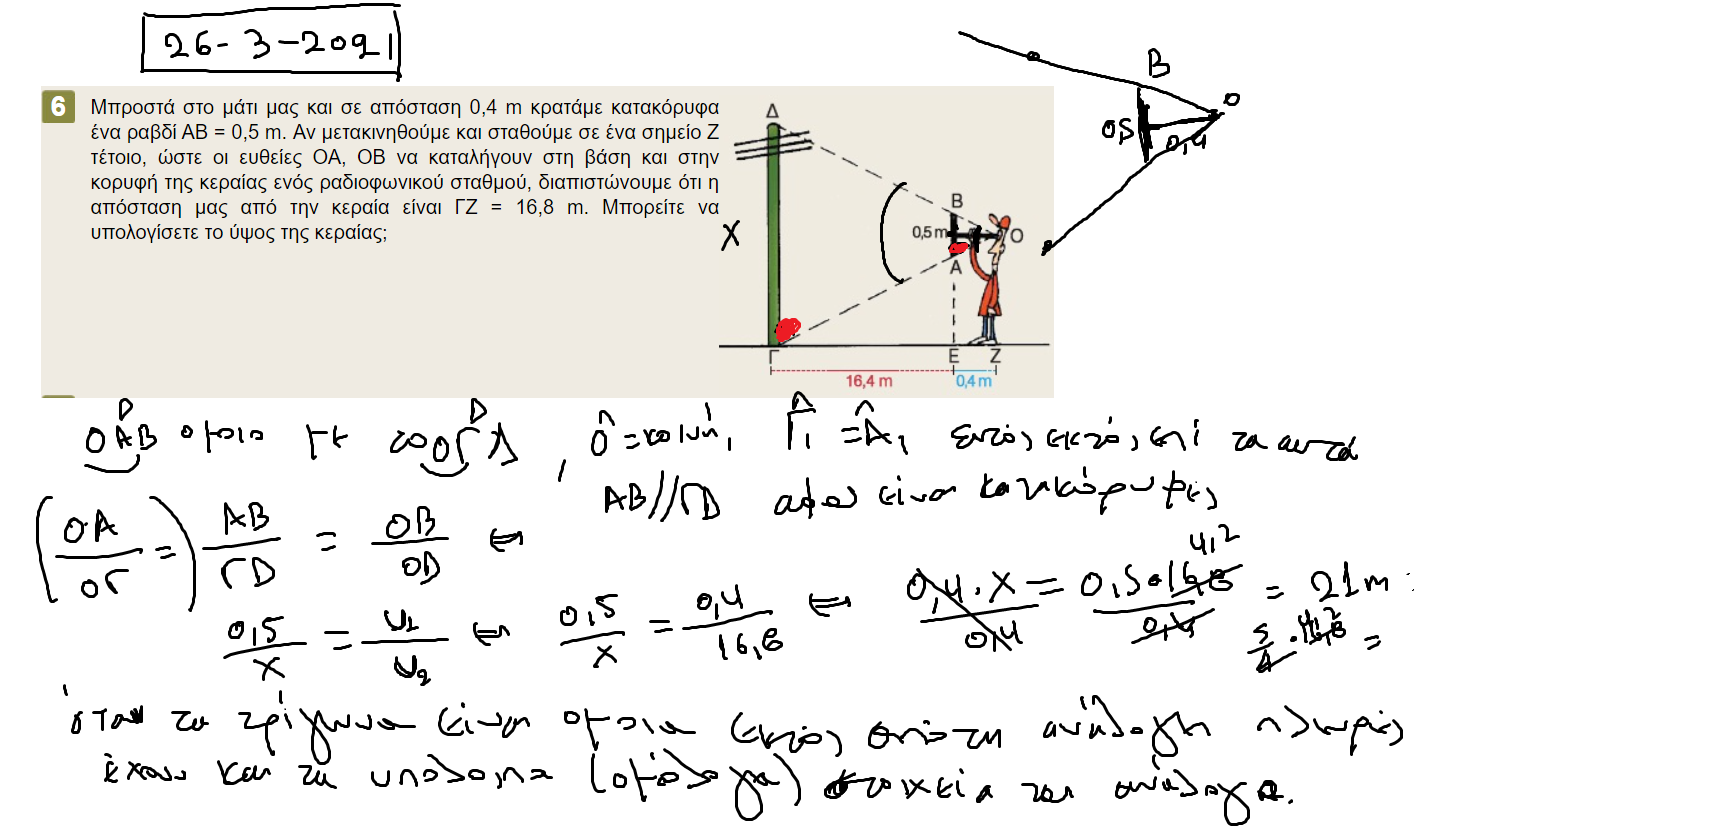 26-3-2021
6 Μπροστά στο μάτι μας και σε απόσταση 0,4 m κρατάμε κατακόρυφα
ένα ραβδί ΑΒ = 0,5 m. Αν μετακινηθούμε και σταθούμε σε ένα σημείο Ζ
τέτοιο, ώστε οι ευθείες ΟΑ, ΟΒ να καταλήγουν στη βάση και στην
κορυφή της κεραίας ενός ραδιοφωνικού σταθμού, διαπιστώνουμε ότι η
απόσταση μας από την κεραία είναι ΓΖ = 16,8 m. Μπορείτε να
υπολογίσετε το ύψος της κεραίας;
Δ
Β
0,5 m
Ο
Α
x
Γ Ε Ζ
16,4 m 0,4 m
Β
Ο
0,5
0,4
ΟΑΒ όμοιο με το ΟΓΔ, Ô = κοινή, Γ̂₁ = Â₁ εντός εκτός επί τα αυτά
ΑΒ//ΓD αφού είναι κατακόρυφες
(ΟΑ/ΟΓ =) ΑΒ/ΓD = ΟΒ/ΟD ⇔
0,5/x = υ₁/υ₂ ⇔ 0,5/x = 0,4/16,8 ⇔ 0,4·x/0,4 = 0,5·16,8/0,4 = 21m
4,2
5/4 · 16,8 =
όταν τα τρίγωνα είναι όμοια εκτός από τις ανάλογη πλευρές
έχουν και τα υπόλοιπα (ομόλογα) στοιχεία του ανάλογα.